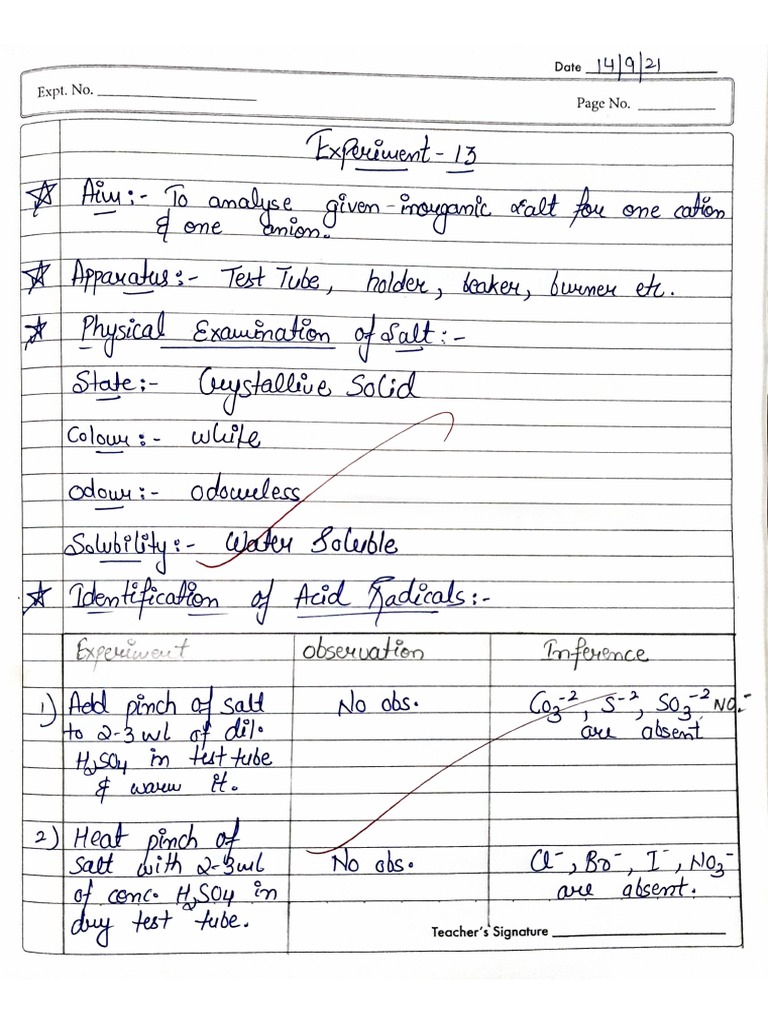 Date 14/9/21
Expt. No.
Page No.
Experiment - 13
Aim :- To analyse given inorganic salt for one cation
& one anion.
Apparatus :- Test Tube, holder, beaker, burner etc.
Physical Examination of Salt :-
State :- Crystallive Solid
Colour :- white
Odour :- Odourless
Solubility :- Water Soluble
Identification of Acid Radicals :-
Experiment Observation Inference
1) Add pinch of salt No obs. CO3⁻², S⁻², SO3⁻² NO2⁻
to 2-3 ml of dil. are absent
H2SO4 in test tube
& warm it.
2) Heat pinch of
salt with 2-3 ml No obs. Cl⁻, Br⁻, I⁻, NO3⁻
of conc. H2SO4 in are absent.
dry test tube.
Teacher's Signature